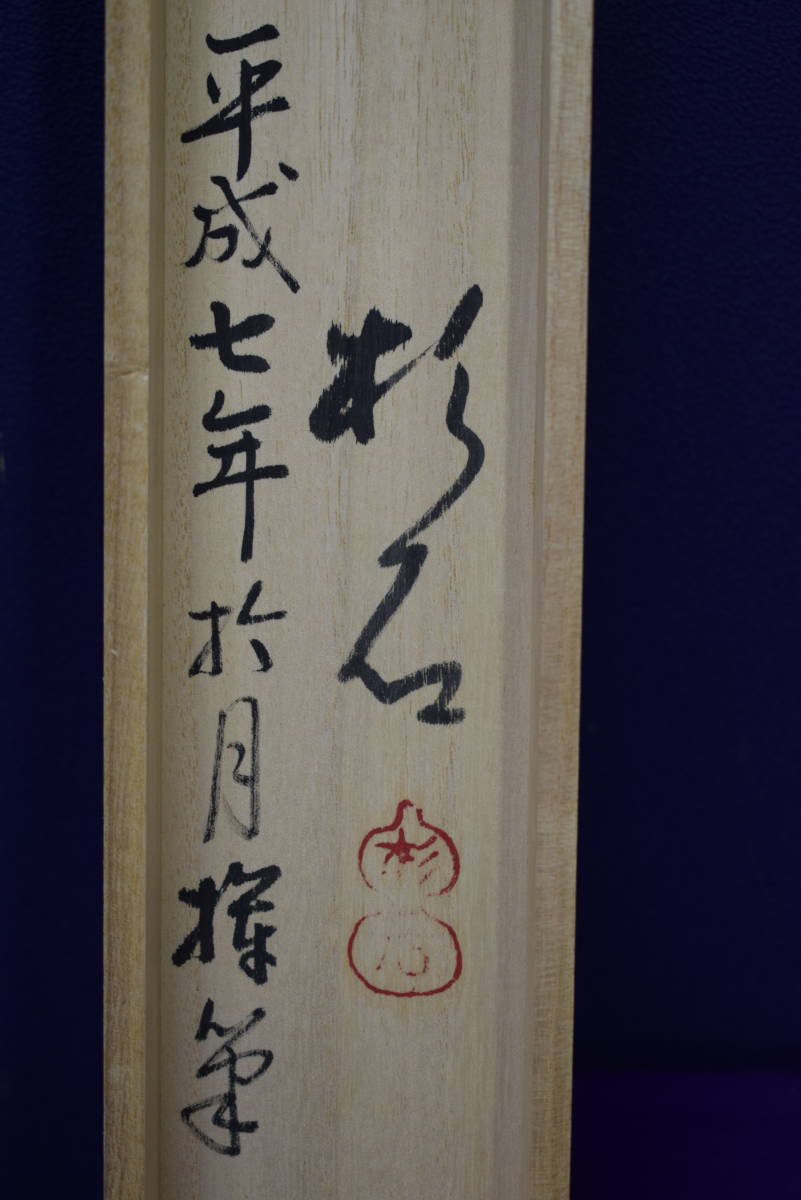 杉石
杉石
平成七年於月揮筆